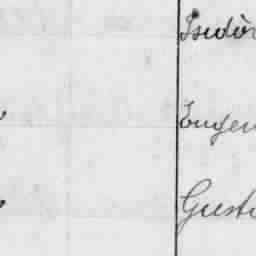 Isidor
Eugen
Gust